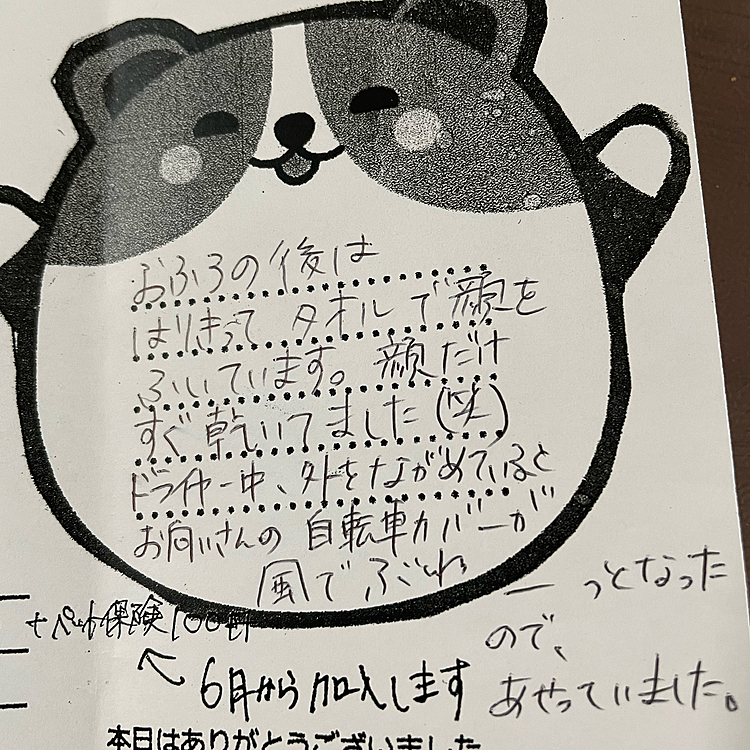 おふろの後は
はりきって タオルで顔を
ふいています。顔だけ
すぐ乾いてました(笑)
ドライヤー中、外をながめていると
お向いさんの 自転車カバーが
風で ぶわぁーっとなった
ので、
あせっていました。
+ペット保険100円
6月から加入します
本日はありがとうございました